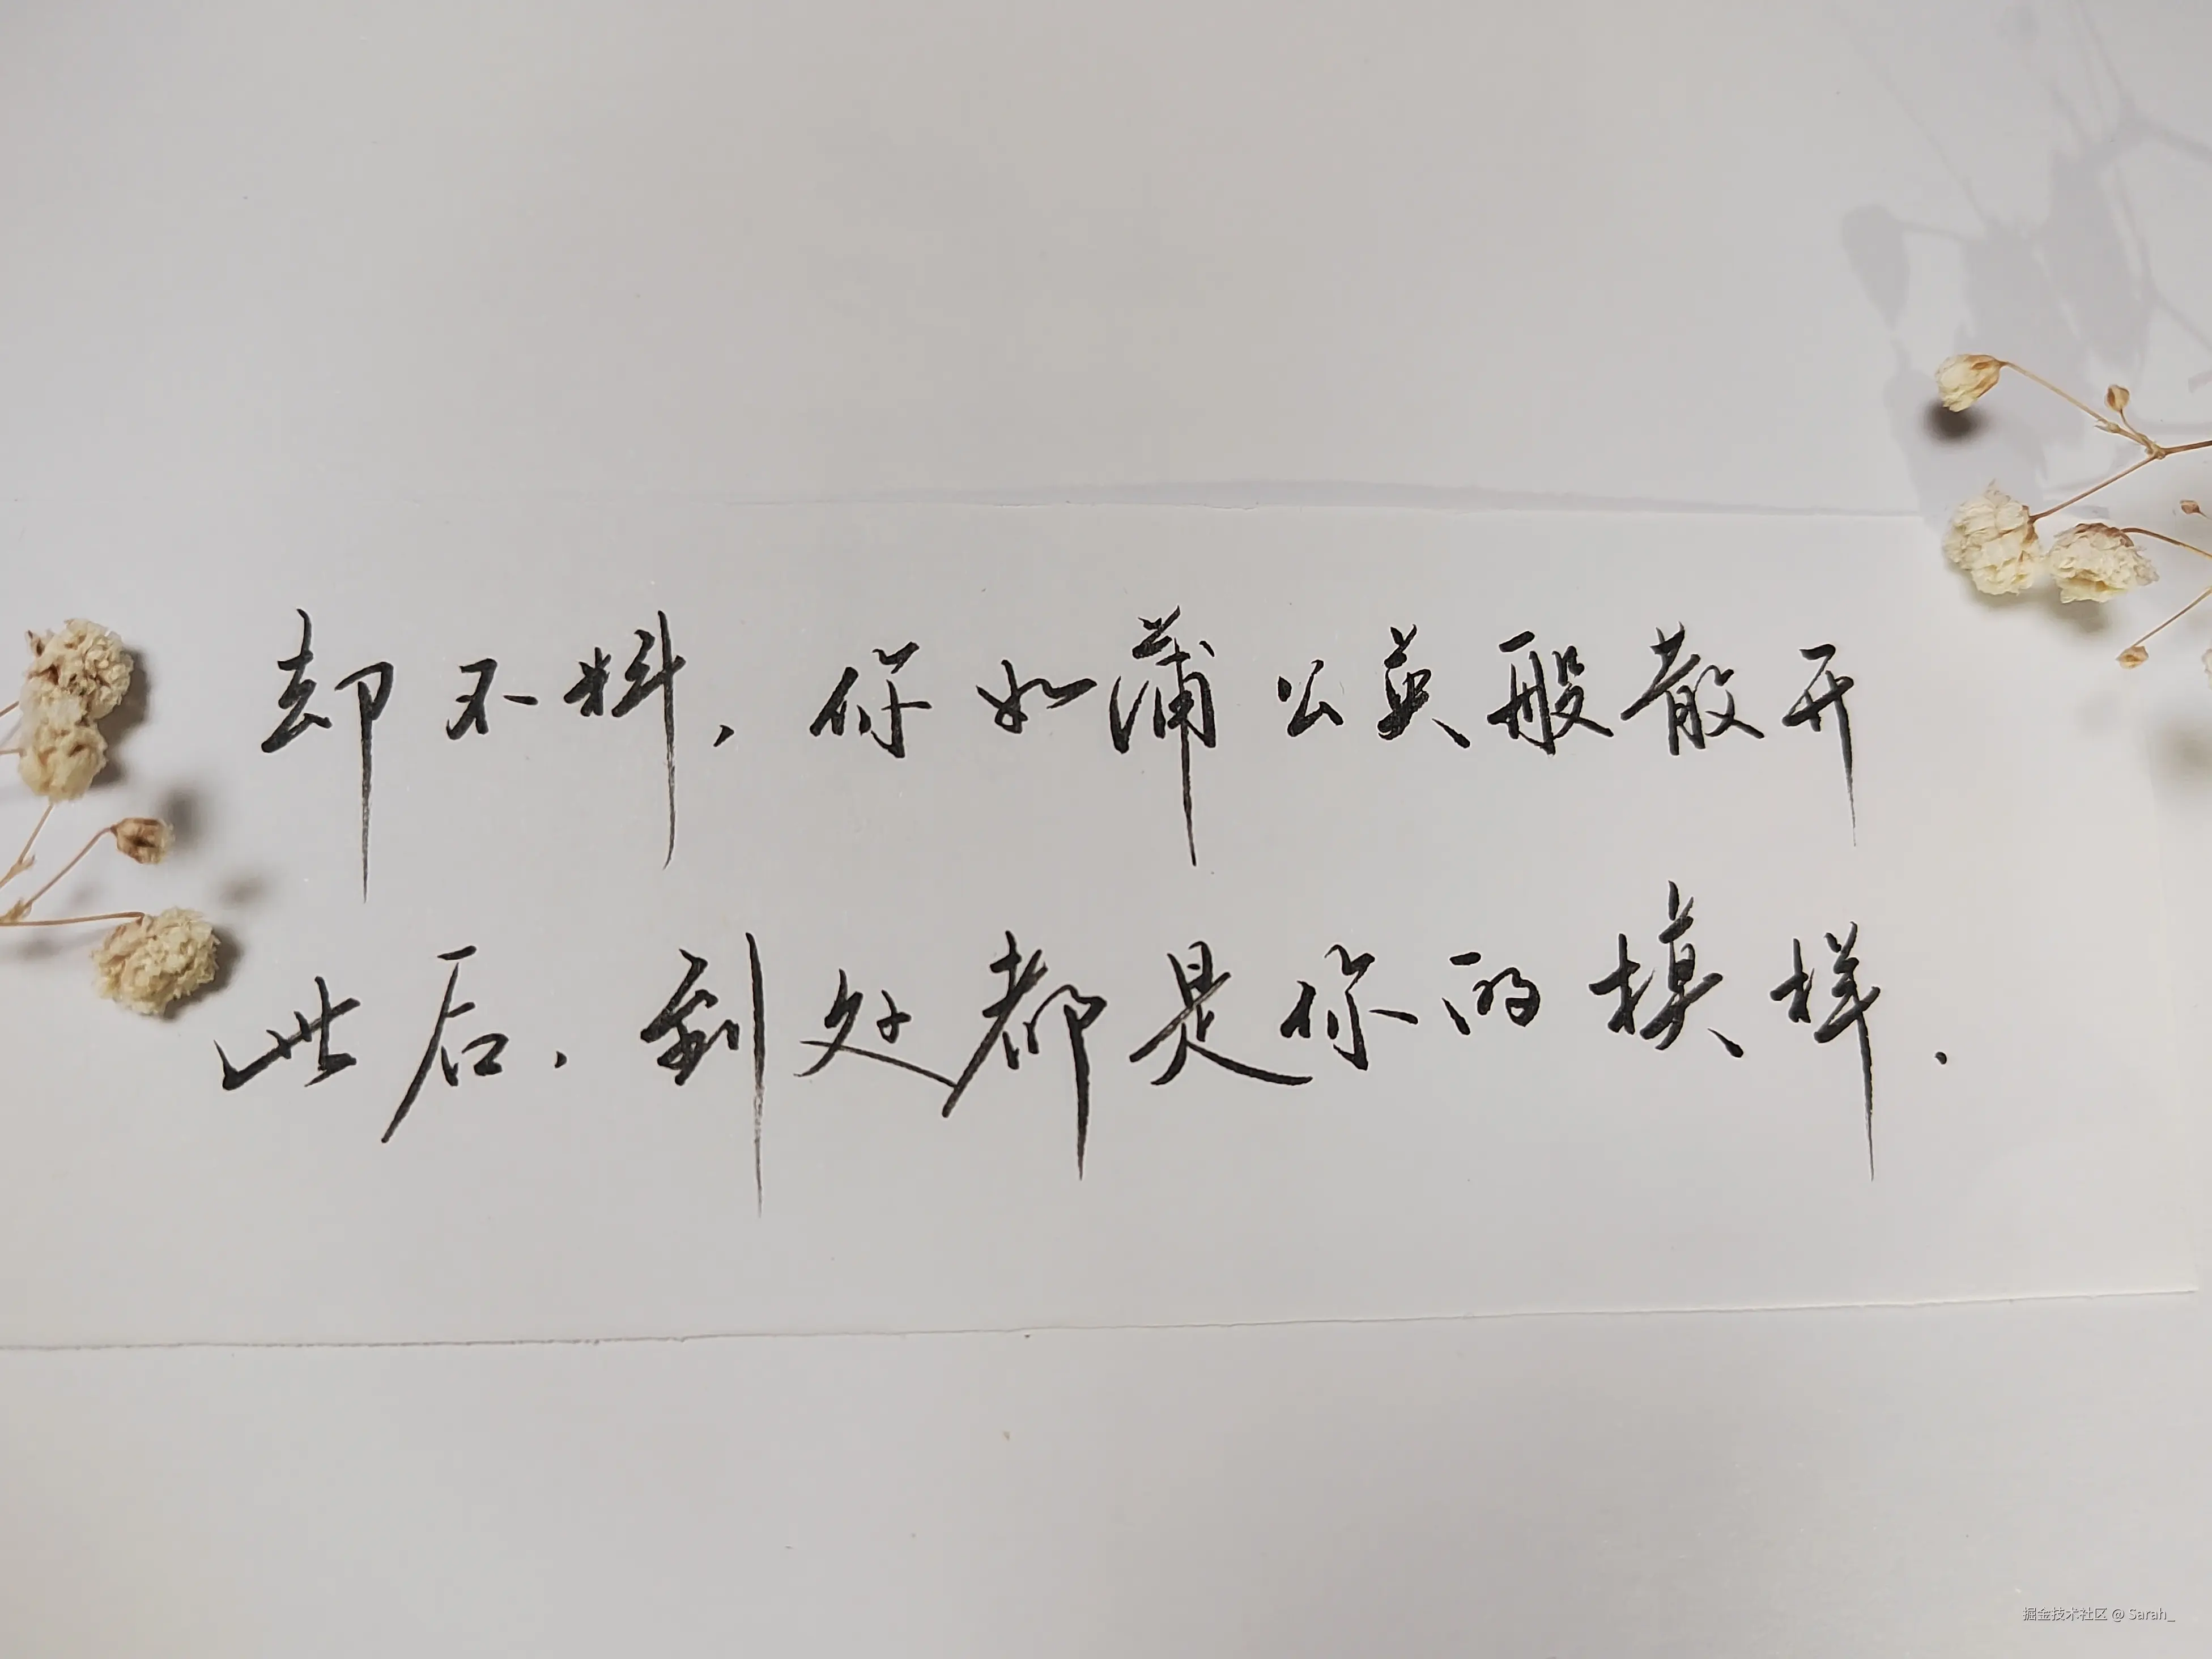 却不料,你如蒲公英般散开
此后,到处都是你的模样.
掘金技术社区 @ Sarah_